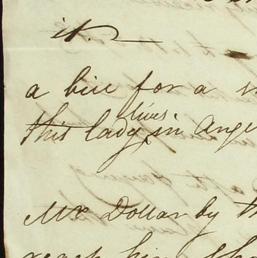 it.
a bill for a
lives
this lady in Ange
Mr Dollar by th
reach him